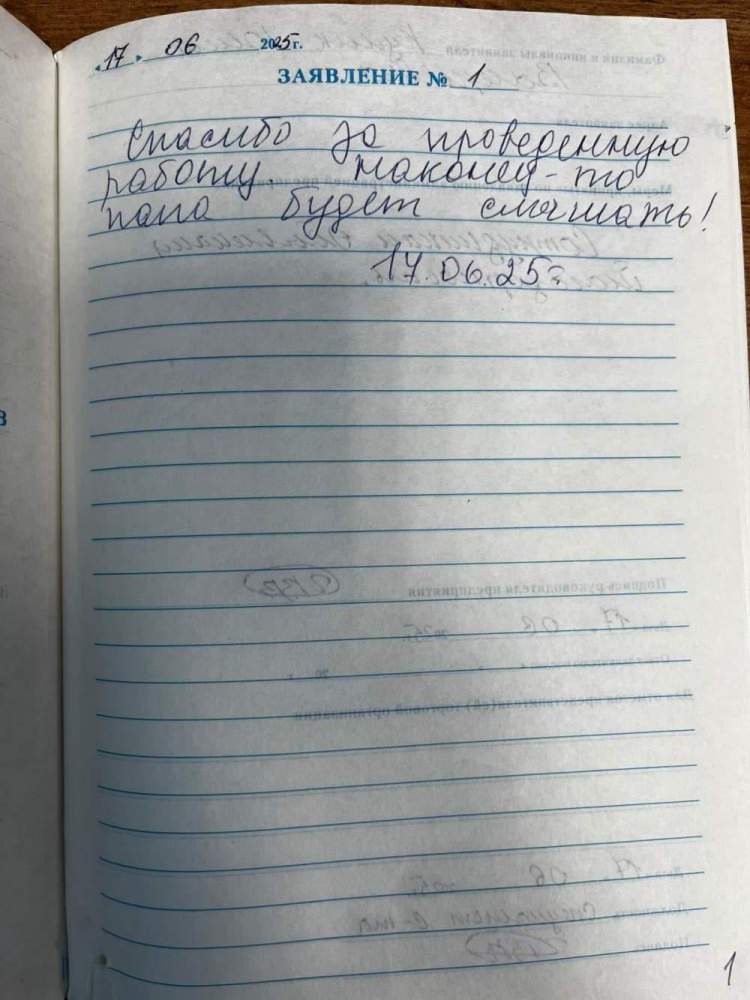 « 17 » 06 2025 г.
ЗАЯВЛЕНИЕ № 1
Спасибо за проведенную
работу. наконец-то
папа будет слышать!
17.06.25г
1